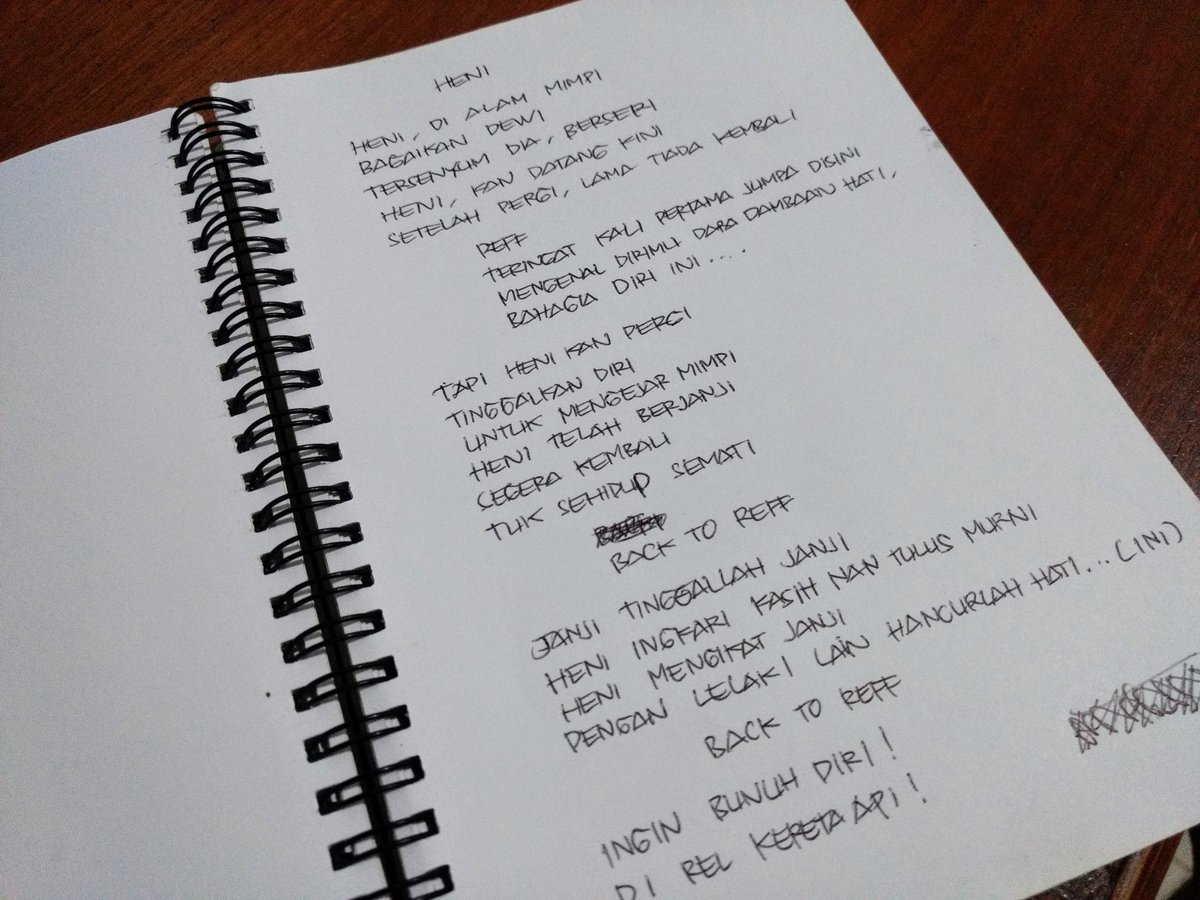 HENI
HENI, DI ALAM MIMPI
BAGAIKAN DEWI
TERSENYUM DIA, BERSERI
HENI, KAN DATANG KINI
SETELAH PERGI, LAMA TIADA KEMBALI
REFF
TERINGAT KALI PERTAMA JUMPA DISINI
MENGENAL DIRIMU DARA DAMBAAN HATI,
BAHAGIA DIRI INI....
TAPI HENI KAN PERGI
TINGGALKAN DIRI
UNTUK MENGEJAR MIMPI
HENI TELAH BERJANJI
SEGERA KEMBALI
TUK SEHIDUP SEMATI
BACK TO REFF
JANJI TINGGALLAH JANJI
HENI INGKARI KASIH NAN TULUS MURNI
HENI MENGIKAT JANJI
DENGAN LELAKI LAIN HANCURLAH HATI... (INI)
BACK TO REFF
INGIN BUNUH DIRI!
DI REL KERETA API!